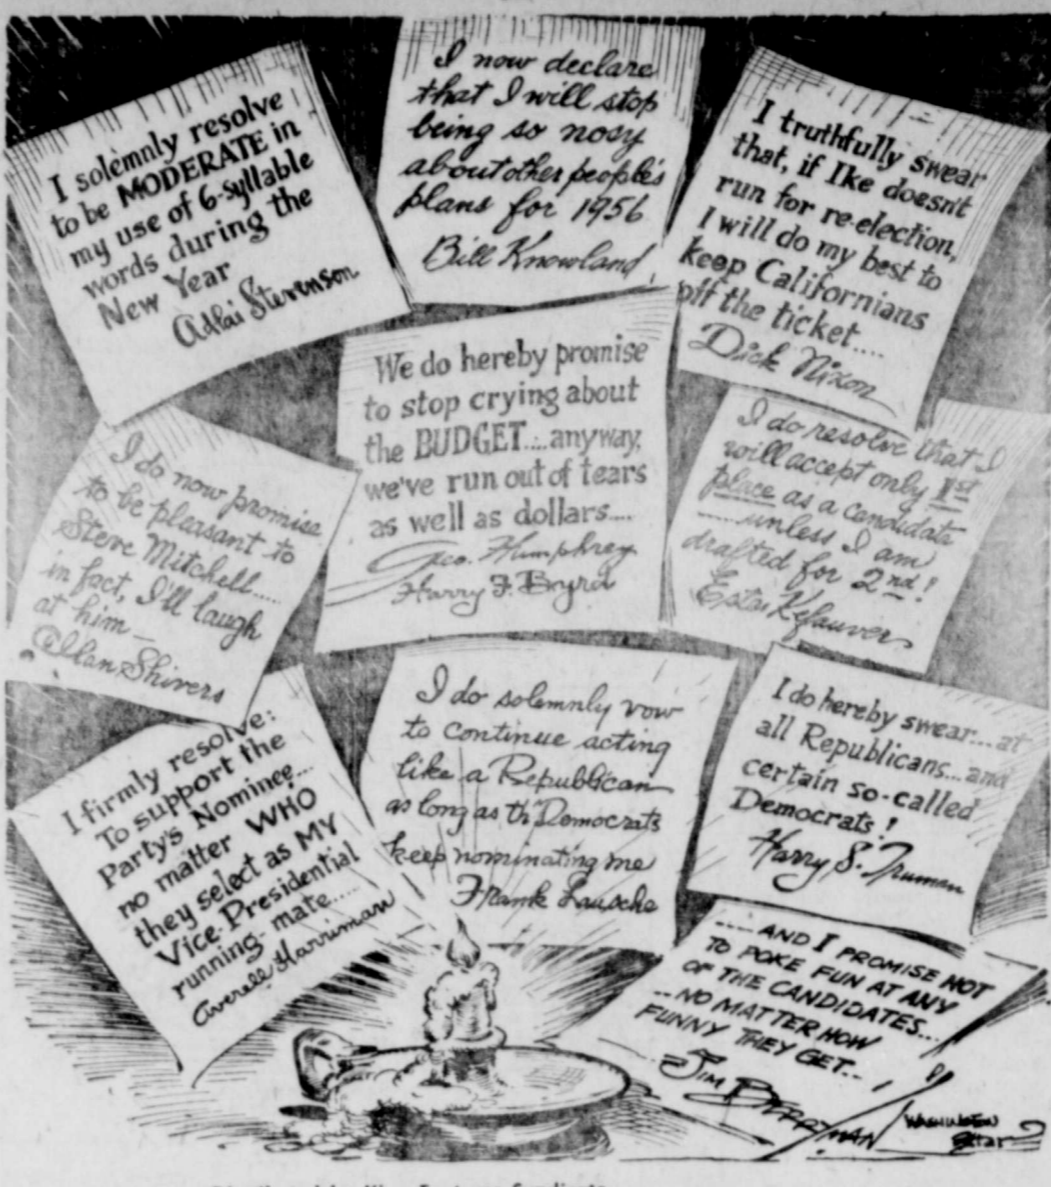 I solemnly resolve
to be MODERATE in
my use of 6-syllable
words during the
New Year
Adlai Stevenson
I now declare
that I will stop
being so nosy
about other people's
plans for 1956
Bill Knowland
I truthfully swear
that, if Ike doesn't
run for re-election,
I will do my best to
keep Californians
off the ticket....
Dick Nixon
We do hereby promise
to stop crying about
the BUDGET....anyway,
we've run out of tears
as well as dollars....
Geo. Humphrey
Harry F. Byrd
I do now promise
to be pleasant to
Steve Mitchell....
in fact, I'll laugh
at him—
Allan Shivers
I do resolve that I
will accept only 1st
place as a candidate
......unless I am
drafted for 2nd!
Estes Kefauver
I firmly resolve:
To support the
Party's Nominee...
no matter WHO
they select as MY
Vice-Presidential
running-mate....
Averell Harriman
I do solemnly vow
to continue acting
like a Republican
as long as th' Democrats
keep nominating me
Frank Lausche
I do hereby swear...at
all Republicans...and
certain so-called
Democrats!
Harry S. Truman
.....AND I PROMISE NOT
TO POKE FUN AT ANY
OF THE CANDIDATES...
...NO MATTER HOW
FUNNY THEY GET...
Jim BERRYMAN
WASHINGTON
Star